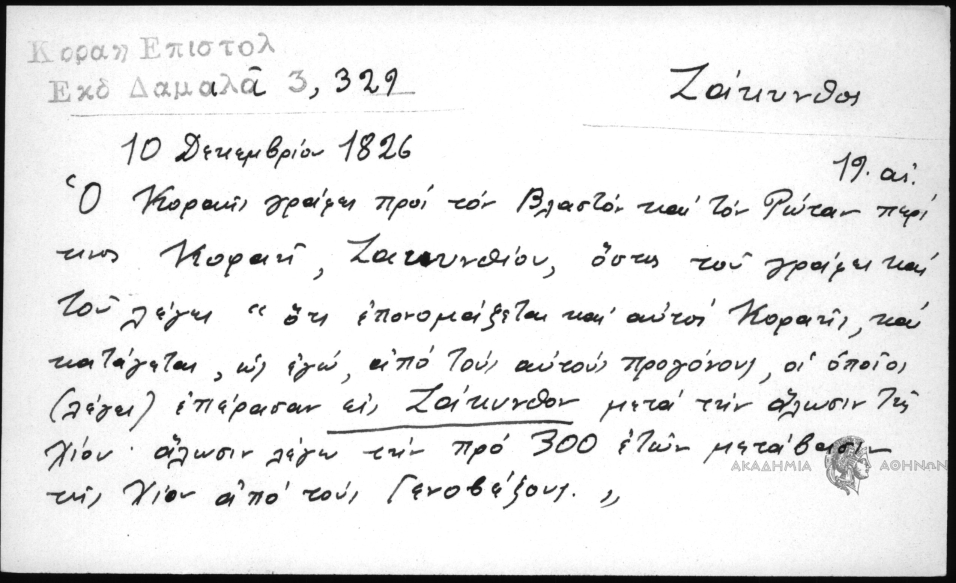 Κοραη Επιστολ
Εκδ Δαμαλᾶ 3, 329
Ζάκυνθος
10 Δεκεμβρίου 1826
19. αἰ.
Ὁ Κοραῆς γράφει πρός τόν Βλαστόν καί τόν Ρώταν περί
τινος Κοραῆ, Ζακυνθίου, ὅστις τοῦ γράφει καί
τοῦ λέγει "ὅτι ἐπονομάζεται καί αὐτός Κοραῆς, καί
κατάγεται, ὡς ἐγώ, ἀπό τούς αὐτούς προγόνους, οἱ ὁποῖοι
(λέγει) ἐπέρασαν εἰς Ζάκυνθον μετά τήν ἅλωσιν τῆς
Χίου· ἅλωσιν λέγω τήν πρό 300 ἐτῶν μετάβασιν
τῆς Χίου ἀπό τούς Γενοβέζους. "
ΑΚΑΔΗΜΙΑ ΑΘΗΝΩΝ